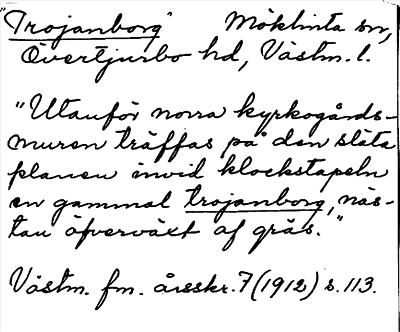 "Trojanborg" Möklinta sn,
Övertjurbo hd, Västm. l.
"Utanför norra kyrkogårds-
muren träffas på den släta
planen invid klockstapeln
en gammal trojanborg, näs-
tan öfverväxt af gräs."
Västm. fm. årsskr. 7 (1912) s. 113.